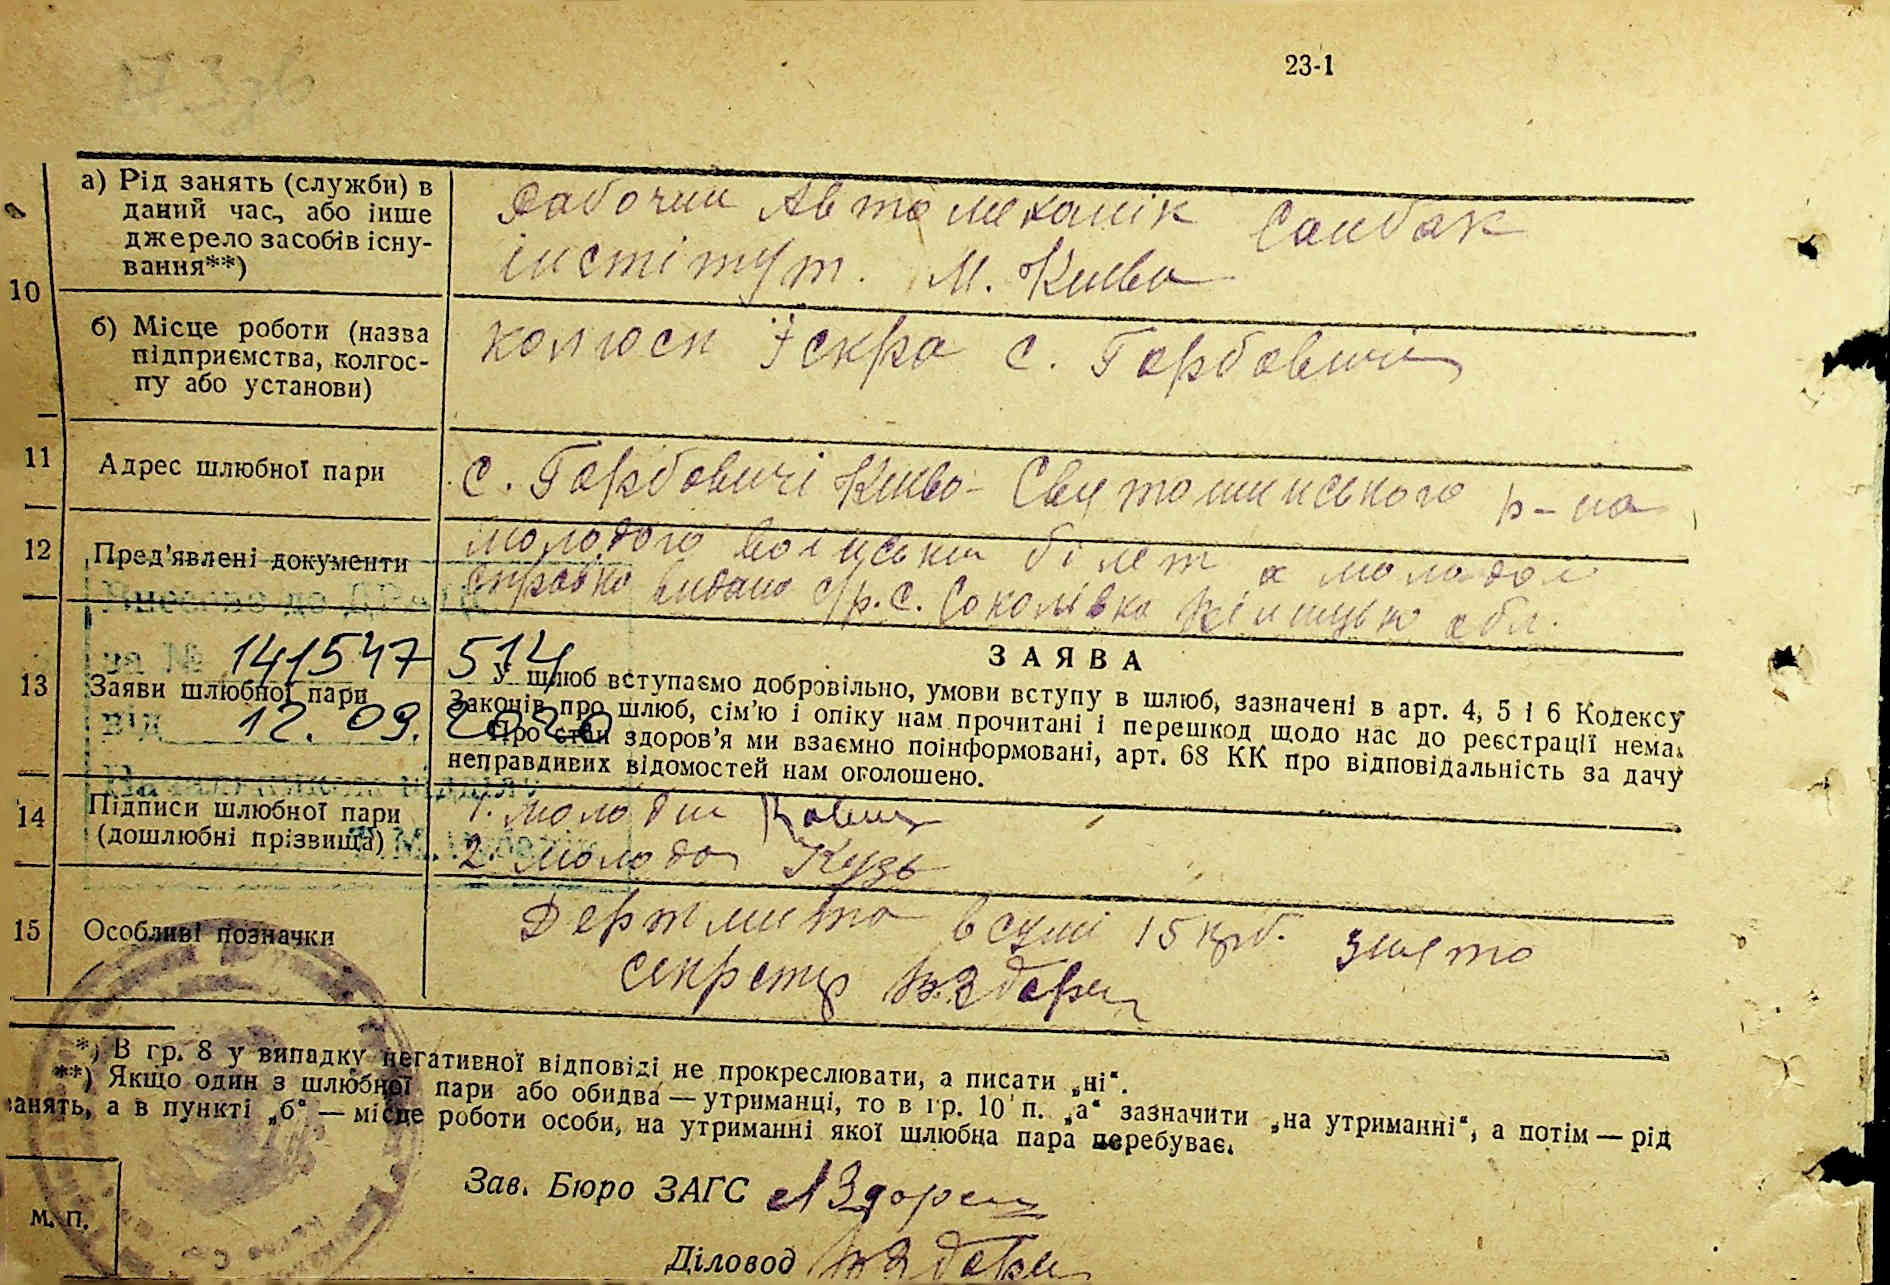 23-1
10
а) Рід занять (служби) в
даний час, або інше
джерело засобів існу-
вання**)
Рабочий Автомеханік
інстітут. М. Київа
б) Місце роботи (назва
підприємства, колгос-
пу або установи)
колгосп Іскра с. Горбовичі
11
Адрес шлюбної пари
с. Горбовичі Києво-Святошинського р-на
12
Пред'явлені документи
молодого білет а молодої
справка видана с/р. с. Соколівка обл.
141547 514
12. 09. 2020
13
Заяви шлюбної пари
ЗАЯВА
У шлюб вступаємо добровільно, умови вступу в шлюб, зазначені в арт. 4, 5 і 6 Кодексу
Законів про шлюб, сім'ю і опіку нам прочитані і перешкод щодо нас до реєстрації нема.
Про стан здоров'я ми взаємно поінформовані, арт. 68 КК про відповідальність за дачу
неправдивих відомостей нам оголошено.
14
Підписи шлюбної пари
(дошлюбні прізвища)
1. молодий
2. молода Кузь
15
Особливі позначки
Держмито в сумі 15 крб. знято
секретар
*) В гр. 8 у випадку негативної відповіді не прокреслювати, а писати „ні“.
**) Якщо один з шлюбної пари або обидва — утриманці, то в гр. 10 п. „а“ зазначити „на утриманні“, а потім — рід
занять, а в пункті „б“ — місце роботи особи, на утриманні якої шлюбна пара перебуває.
Зав. Бюро ЗАГС
Діловод
м. п.